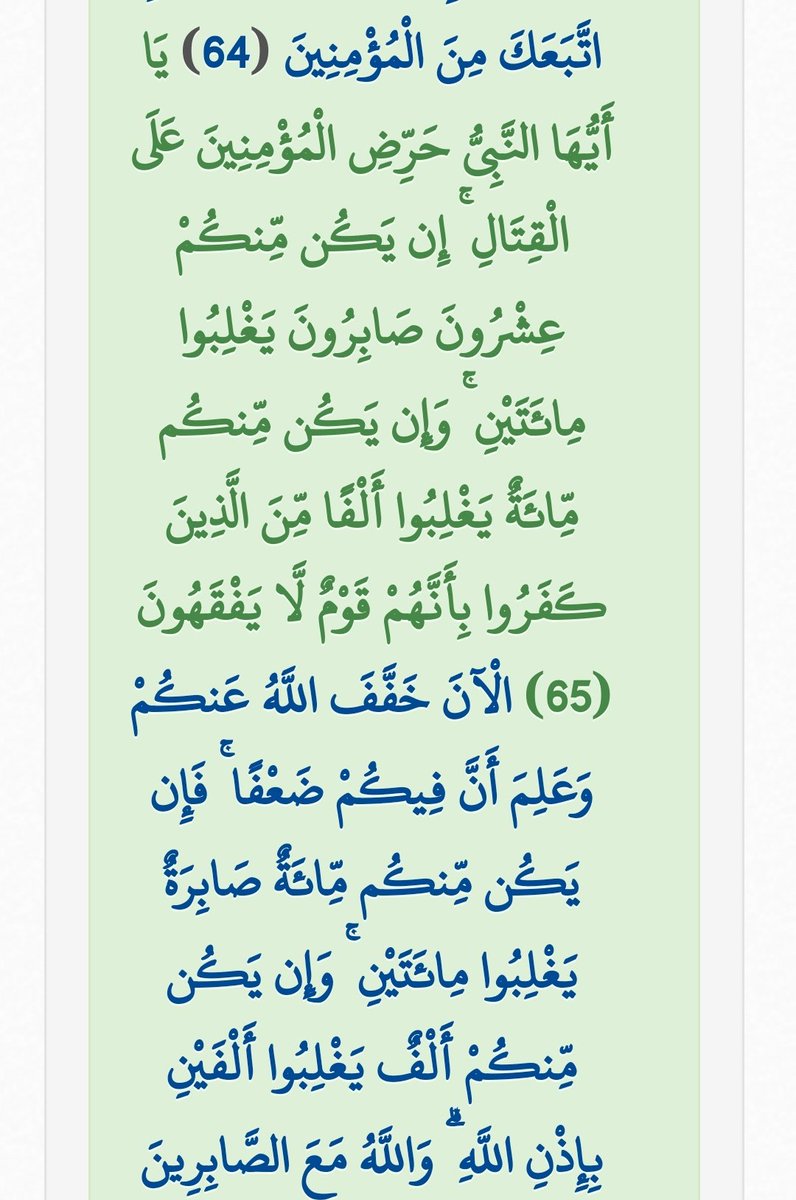 اتَّبَعَكَ مِنَ الْمُؤْمِنِينَ (64) يَا
أَيُّهَا النَّبِيُّ حَرِّضِ الْمُؤْمِنِينَ عَلَى
الْقِتَالِ ۚ إِن يَكُن مِّنكُمْ
عِشْرُونَ صَابِرُونَ يَغْلِبُوا
مِائَتَيْنِ ۚ وَإِن يَكُن مِّنكُم
مِّائَةٌ يَغْلِبُوا أَلْفًا مِّنَ الَّذِينَ
كَفَرُوا بِأَنَّهُمْ قَوْمٌ لَّا يَفْقَهُونَ
(65) الْآنَ خَفَّفَ اللَّهُ عَنكُمْ
وَعَلِمَ أَنَّ فِيكُمْ ضَعْفًا ۚ فَإِن
يَكُن مِّنكُم مِّائَةٌ صَابِرَةٌ
يَغْلِبُوا مِائَتَيْنِ ۚ وَإِن يَكُن
مِّنكُمْ أَلْفٌ يَغْلِبُوا أَلْفَيْنِ
بِإِذْنِ اللَّهِ ۗ وَاللَّهُ مَعَ الصَّابِرِينَ